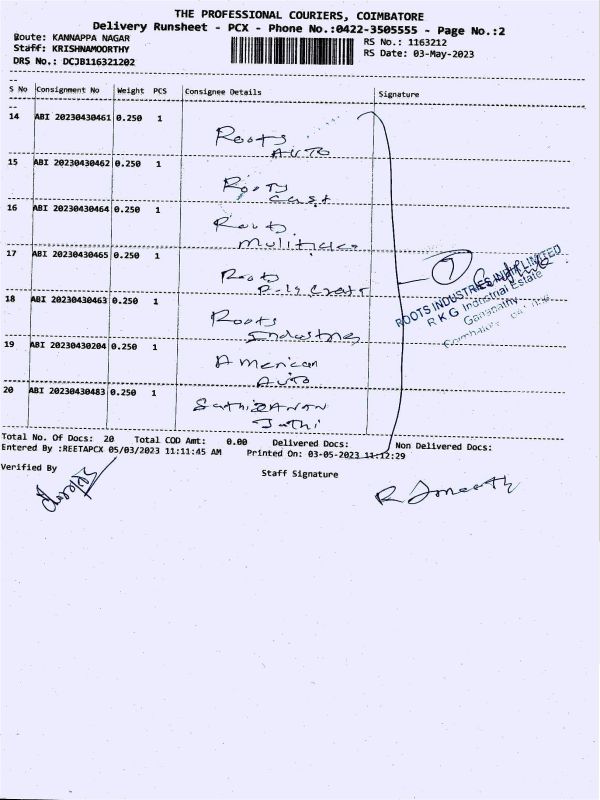 THE PROFESSIONAL COURIERS, COIMBATORE
Delivery Runsheet - PCX - Phone No.:0422-3505555 - Page No.:2
Route: KANNAPPA NAGAR
RS No.: 1163212
Staff: KRISHNAMOORTHY
RS Date: 03-May-2023
DRS No.: DCJB116321202
S No Consignment No Weight PCS Consignee Details Signature
14 ABI 20230430461 0.250 1
Roots
AUTO
15 ABI 20230430462 0.250 1
Roots
Cast
16 ABI 20230430464 0.250 1
Roots
17 ABI 20230430465 0.250 1
Roots
18 ABI 20230430463 0.250 1
Roots
19 ABI 20230430204 0.250 1
American
Auto
20 ABI 20230430483 0.250 1
7
ROOTS INDUSTRIES INDIA LIMITED
R K G Industrial Estate
Ganapathy
Total No. Of Docs: 20 Total COD Amt: 0.00 Delivered Docs: Non Delivered Docs:
Entered By :REETAPCX 05/03/2023 11:11:45 AM Printed On: 03-05-2023 11:12:29
Verified By
Staff Signature